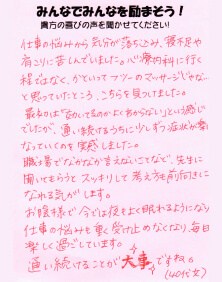 みんなでみんなを励まそう！
貴方の喜びの声を聞かせてください！
仕事の悩みから気分が落ち込み、寝不足や
肩こりに苦しんでいました。心療内科に行く
程ではなく、かといってフツーのマッサージじゃな…
と思っていたところ、こちらを見つけました。
最初は「効いてるのかよく分からない」という感じ
でしたが、通い続けるうちに少しずつ症状が楽
なっていくのを実感しました。
職場でなかなか言えないことなど、先生に
聞いてもらうとスッキリして考え方も前向きに
なれる気がします。
お陰様で今では夜もよく眠れるようになり
仕事の悩みも重く受け止めなくなり、毎日
楽しく過ごしています。
通い続けることが大事ですね。
(40代女)